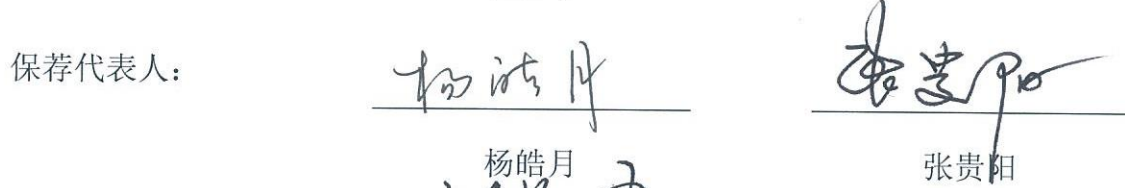 保荐代表人： 杨皓月 张贵阳
杨皓月 张贵阳